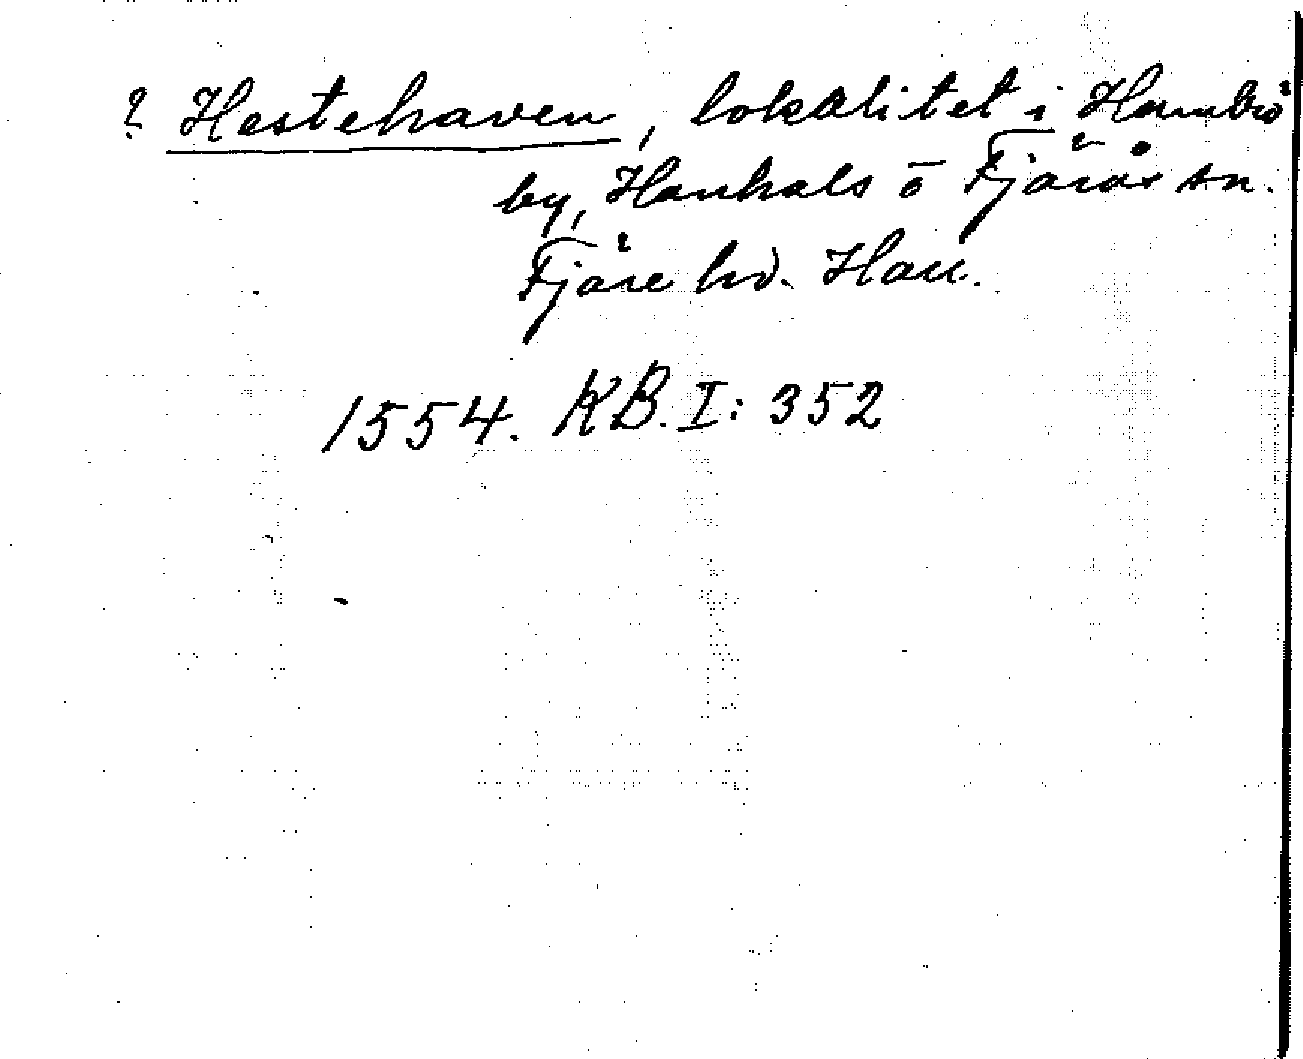 ? Hestehaven, lokalitet i Hambrö
by, Hanhals o Fjärås sn.
Fjäre hd. Hall.
1554. KB. I: 352